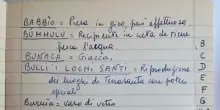 BABBIO = Presa in giro, più affettuosa.
BUMMULU = Recipiente in creta da tiene
fresca l'acqua.
BUNACA = Giacca.
BULLI I LOCHI SANTI = Riproduzione
dei luoghi di Terrasanta con poteri
speciali
Burnia = vaso di vetro
B
C
D
E
F
G